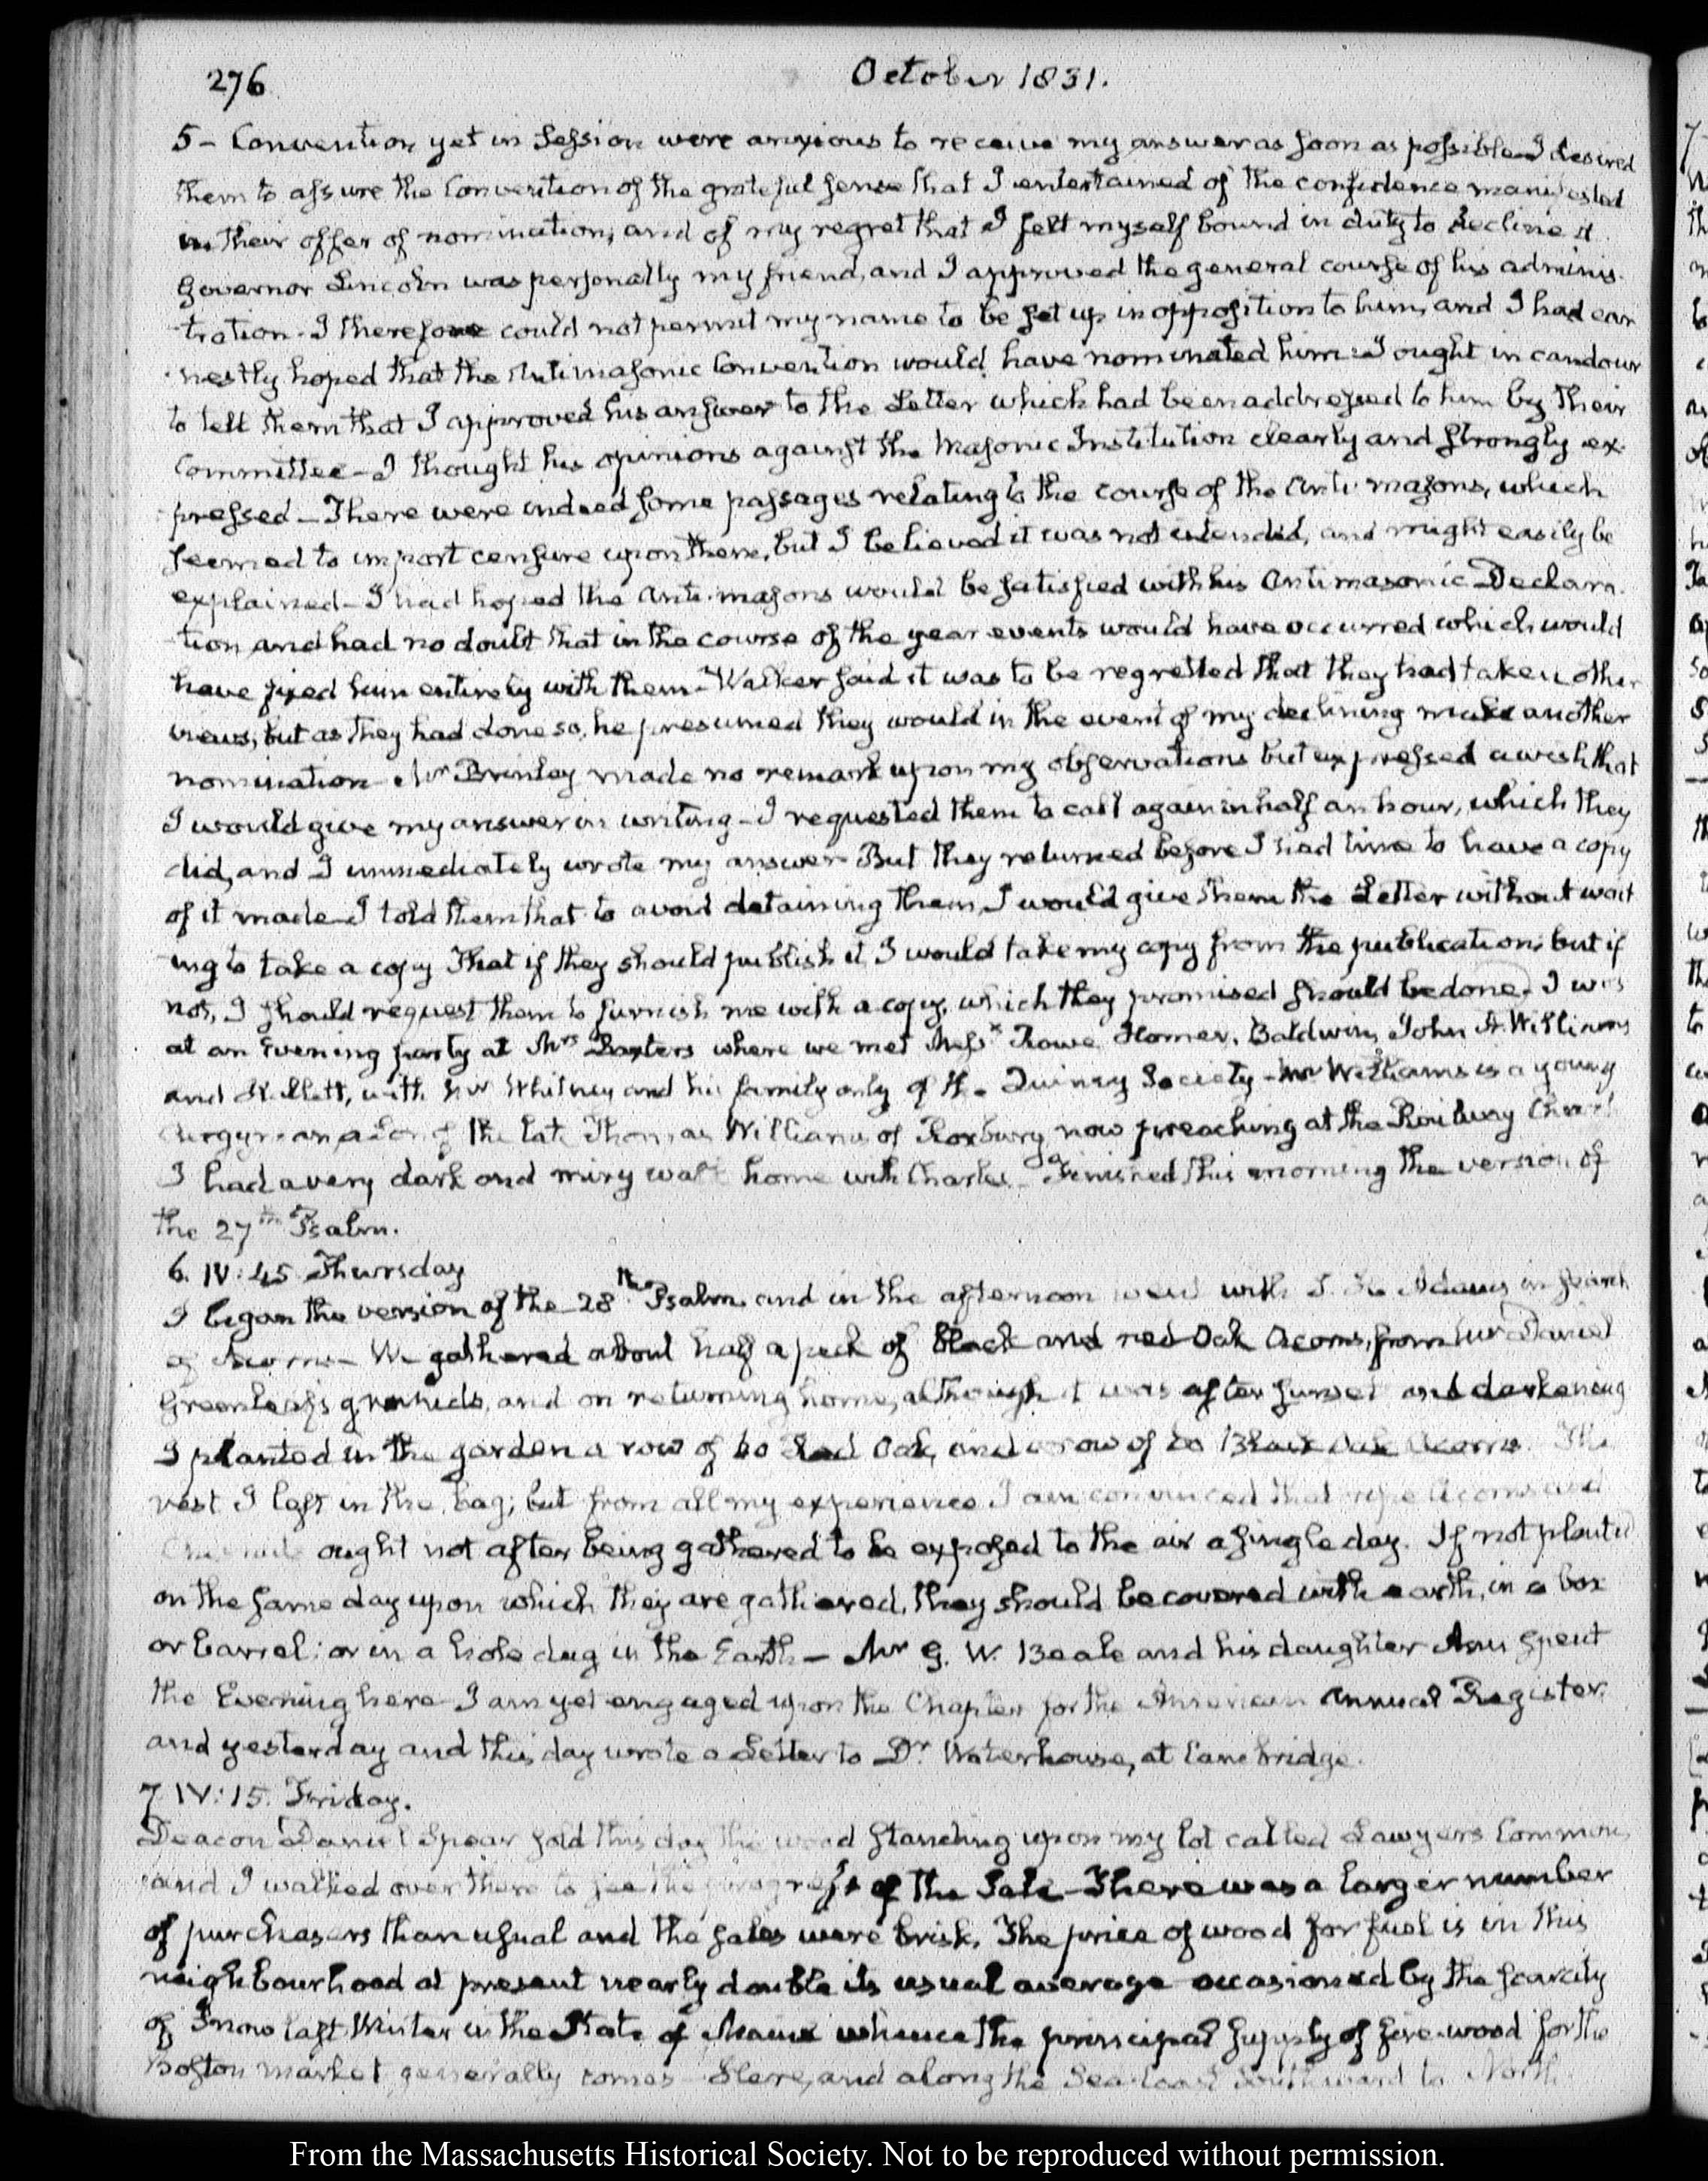 276
October 1831.
5 - Convention yet in Session were anxious to receive my answer as soon as possible - I desired
them to assure the Convention of the grateful sense that I entertained of the confidence manifested
in their offer of nomination, and of my regret that I felt myself bound in duty to decline it.
Governor Lincoln was personally my friend, and I approved the general course of his adminis-
tration - I therefore could not permit my name to be set up in opposition to him, and I had ear
nestly hoped that the Antimasonic Convention would have nominated him - I ought in candour
to tell them that I approved his answer to the Letter which had been addressed to him by their
Committee - I thought his opinions against the Masonic Institution clearly and strongly ex-
pressed - There were indeed some passages relating to the course of the Anti-masons, which
seemed to import censure upon them, but I believed it was not intended, and might easily be
explained - I had hoped the Anti-masons would be satisfied with his Antimasonic Declara-
tion and had no doubt that in the course of the year events would have occurred which would
have fixed him entirely with them - Walker said it was to be regretted that they had taken other
views, but as they had done so, he presumed they would in the event of my declining make another
nomination - Mr Brinley made no remark upon my observations but expressed a wish that
I would give my answer in writing - I requested them to call again in half an hour, which they
did, and I immediately wrote my answer - But they returned before I had time to have a copy
of it made - I told them that to avoid detaining them, I would give them the Letter without wait
ing to take a copy That if they should publish it I would take my copy from the publication; but if
not, I should request them to furnish me with a copy, which they promised should be done. I was
at an Evening party at Mrs Baxters where we met Messrs Rowe Homer, Baldwin, John A. Williams
and Hallett, with Mr Whitney and his family only of the Quincy Society - Mr Williams is a young
Clergyman, a Son of the late Thomas Williams of Roxbury, now preaching at the Roxbury Church
I had a very dark and miry walk home with Charles - Finished this morning the version of
the 27th Psalm.
6. IV: 45 Thursday
I began the version of the 28th Psalm, and in the afternoon went with T. B. Adams in search
of Acorns - We gathered about half a peck of Black and red Oak Acorns, from Mr Daniel
Greenleaf's grounds, and on returning home, although it was after sunset and darkening
I planted in the garden a row of 60 Red Oak, and a row of 20 Black Oak Acorns. The
rest I left in the bag; but from all my experience I am convinced that ripe Acorns and
Chesnuts ought not after being gathered to be exposed to the air a single day. If not planted
on the same day upon which they are gathered, they should be covered with earth, in a box
or barrel: or in a hole dug in the Earth - Mr G. W. Beale and his daughter Ann spent
the Evening here - I am yet engaged upon the Chapter for the American Annual Register,
and yesterday and this day wrote a Letter to Dr Waterhouse, at Cambridge.
7. IV: 15. Friday.
Deacon Daniel Spear sold this day the wood standing upon my lot called Lawyers Common,
and I walked over there to see the progress of the Sale - There was a larger number
of purchasers than usual and the sales were brisk. The price of wood for fuel is in this
neighbourhood at present nearly double its usual average occasioned by the scarcity
of Snow last Winter in the State of Maine whence the principal supply of fire-wood for the
Boston market generally comes - Here, and along the Sea-Coast Southward to North
From the Massachusetts Historical Society. Not to be reproduced without permission.